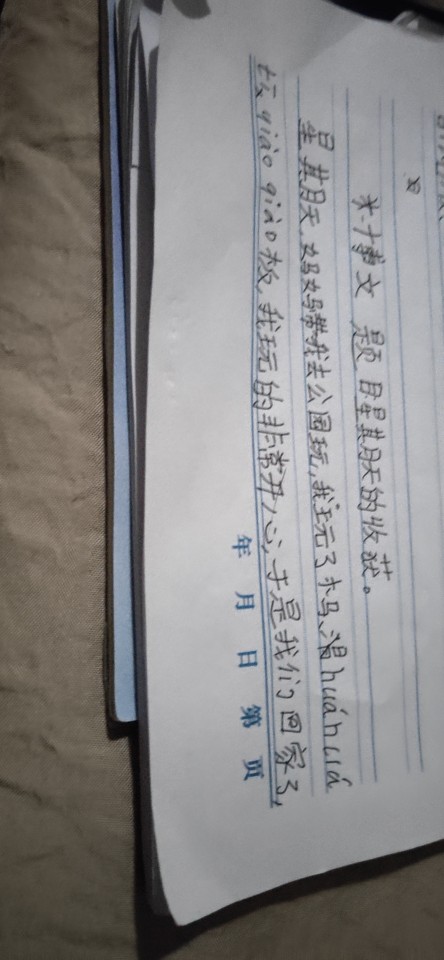 米小事文 题目星其月天的收获。
星其月天,妈妈带我去公园玩,我玩了木马、滑huáhuá
tī qiāo qiāo板,我玩的非常开心,于是我们回家了,
年 月 日 第 页